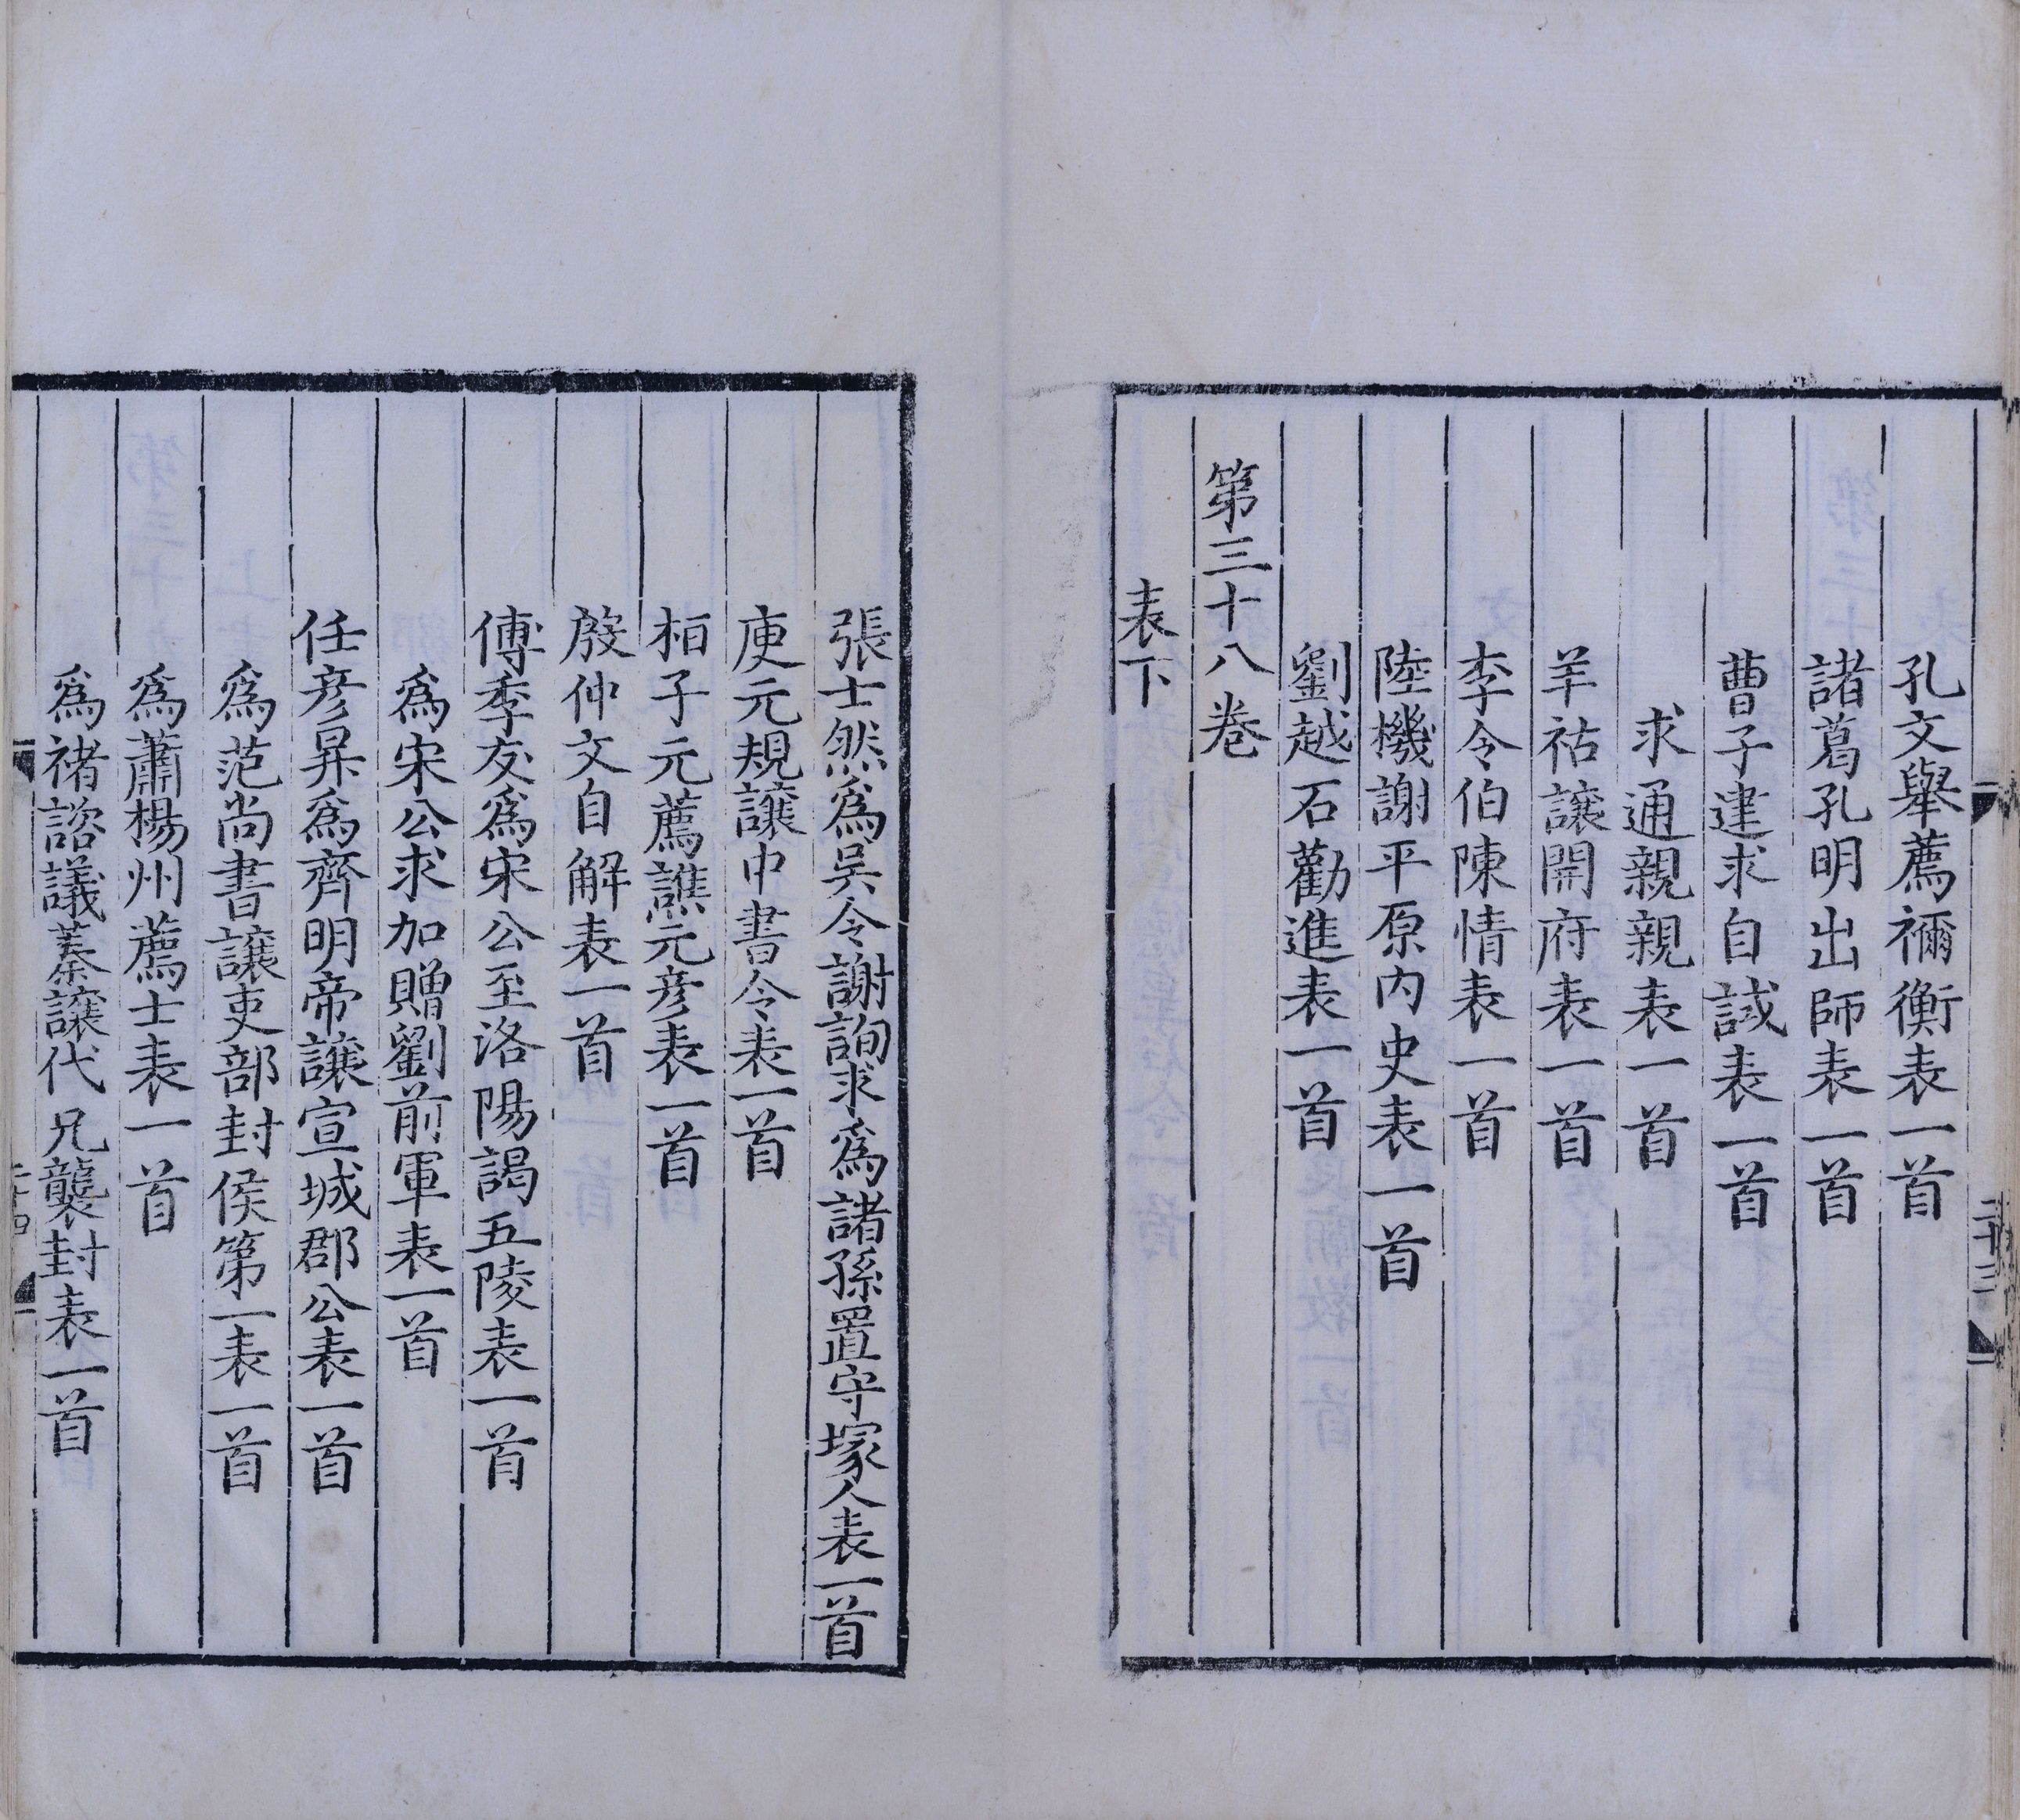 孔文舉薦禰衡表一首
諸葛孔明出師表一首
曹子建求自誠表一首
求通親親表一首
羊祜讓開府表一首
李令伯陳情表一首
陸機謝平原內史表一首
劉越石勸進表一首
第三十八卷
表下
張士然爲吳令謝詢求爲諸孫置守塚人表一首
庾元規讓中書令表一首
桓子元薦譙元彥表一首
殷仲文自解表一首
傅季友爲宋公至洛陽謁五陵表一首
爲宋公求加贈劉前軍表一首
任彥昇爲齊明帝讓宣城郡公表一首
爲范尚書讓吏部封侯第一表一首
爲蕭楊州薦士表一首
爲禇諮議蓁讓代兄襲封表一首